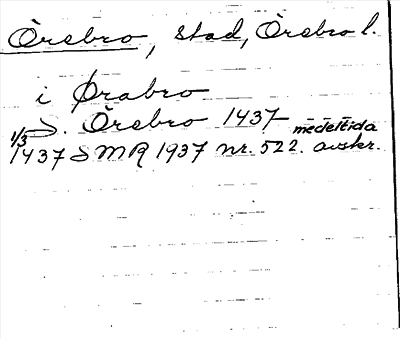 Örebro, stad, Örebro l.
i Ørabro
S. Örebro 1437
1/3 1437 S MR 1937 nr. 522. medeltida avskr.